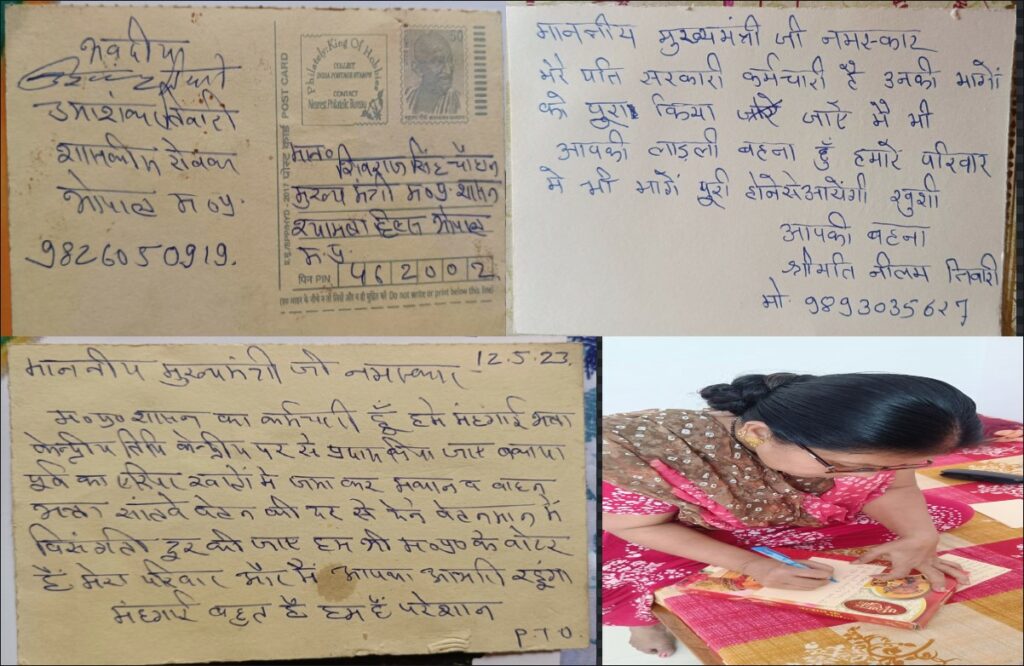 भवदीय
उमाशंकर तिवारी
शासकीय सेवक
भोपाल म०प्र०
9826050919.
POST CARD पोस्ट कार्ड
Philately: King Of Hobbies
COLLECT
INDIA POSTAGE STAMPS
CONTACT
Nearest Philatelic Bureau
50
मान०
शिवराज सिंह चौहान
मुख्य मंत्री म०प्र० शासन
श्यामला हिल्स भोपाल
म.प्र.
पिन PIN 462002
Do not write or print below this line
माननीय मुख्यमंत्री जी नमस्कार
मेरे पति सरकारी कर्मचारी है उनकी मागों
को पूरा किया जाऐ मै भी
आपकी लाड़ली बहना हुँ हमारे परिवार
मे भी मागें पूरी होनेसे आयेंगी खुशी
आपकी बहना
श्रीमति नीलम तिवारी
मो. 9893035627
12.5.23
माननीय मुख्यमंत्री जी नमस्कार
म०प्र० शासन का कर्मचारी हूँ हमे मंहगाई भत्ता
केन्द्रीय तिथि केन्द्रीय दर से प्रदाय किया जाए बकाया
पूर्व का एरियर खातों मे जमा कर मकान व वाहन
भत्ता सांतवे वेतन की दर से देने वेतनमान में
विसंगती दूर की जाए हम भी म०प्र० के वोटर
हैं मेरा परिवार और मैं आपका आभारी रहूंगा
मंहगाई बहुत है हम हैं परेशान
P.T.O.